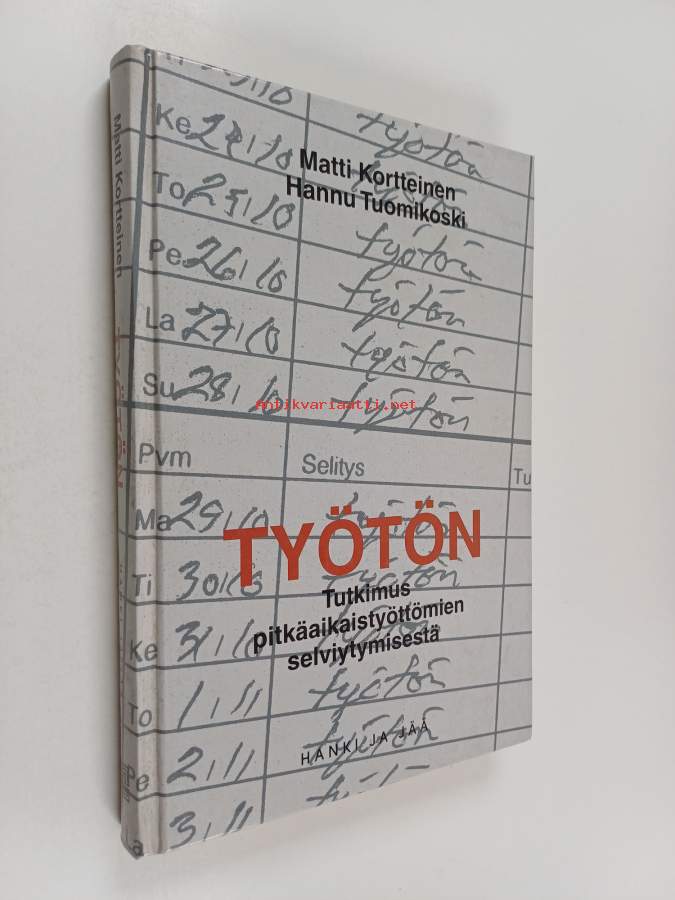 Matti Kortteinen
TYÖTÖN
työtön
Ke 24/10 työtön
Matti Kortteinen
Hannu Tuomikoski
To 25/10 työtön
Pe 26/10 työtön
La 27/10 työtön
Su 28/10 työtön
antikvariaatti.net
Pvm Selitys Tu
Ma 29/10 työtön
TYÖTÖN
Ti 30/10 työtön
Tutkimus
pitkäaikaistyöttömien
selviytymisestä
Ke 31/10 työtön
To 1/11 työtön
Pe 2/11 työtön
HANKI JA JÄÄ
La 3/11